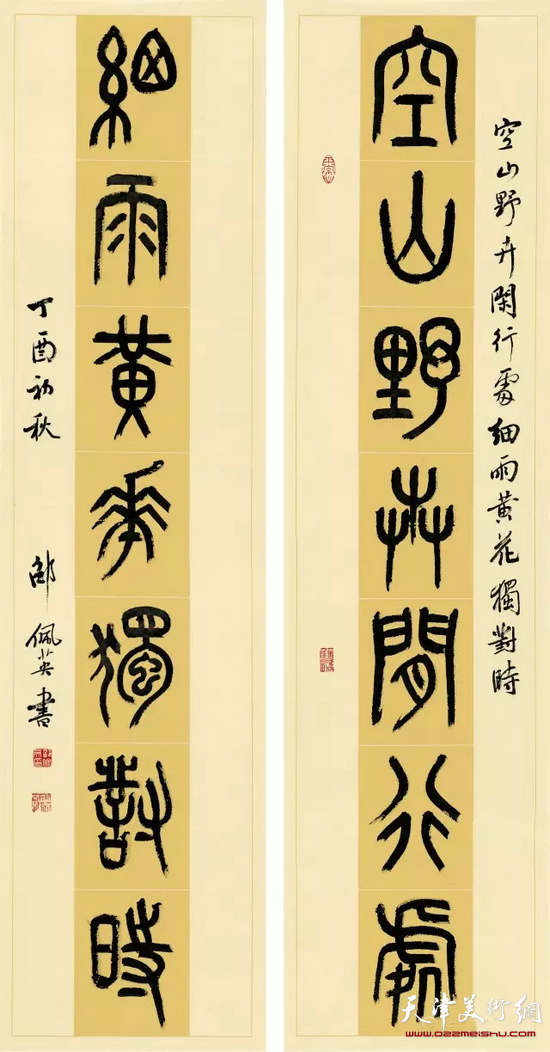 空山野卉閒行處細雨黃花獨對時
空山野卉閒行處
細雨黃華獨對時
丁酉初秋
邵佩英書
天津美術網
www.022meishu.com